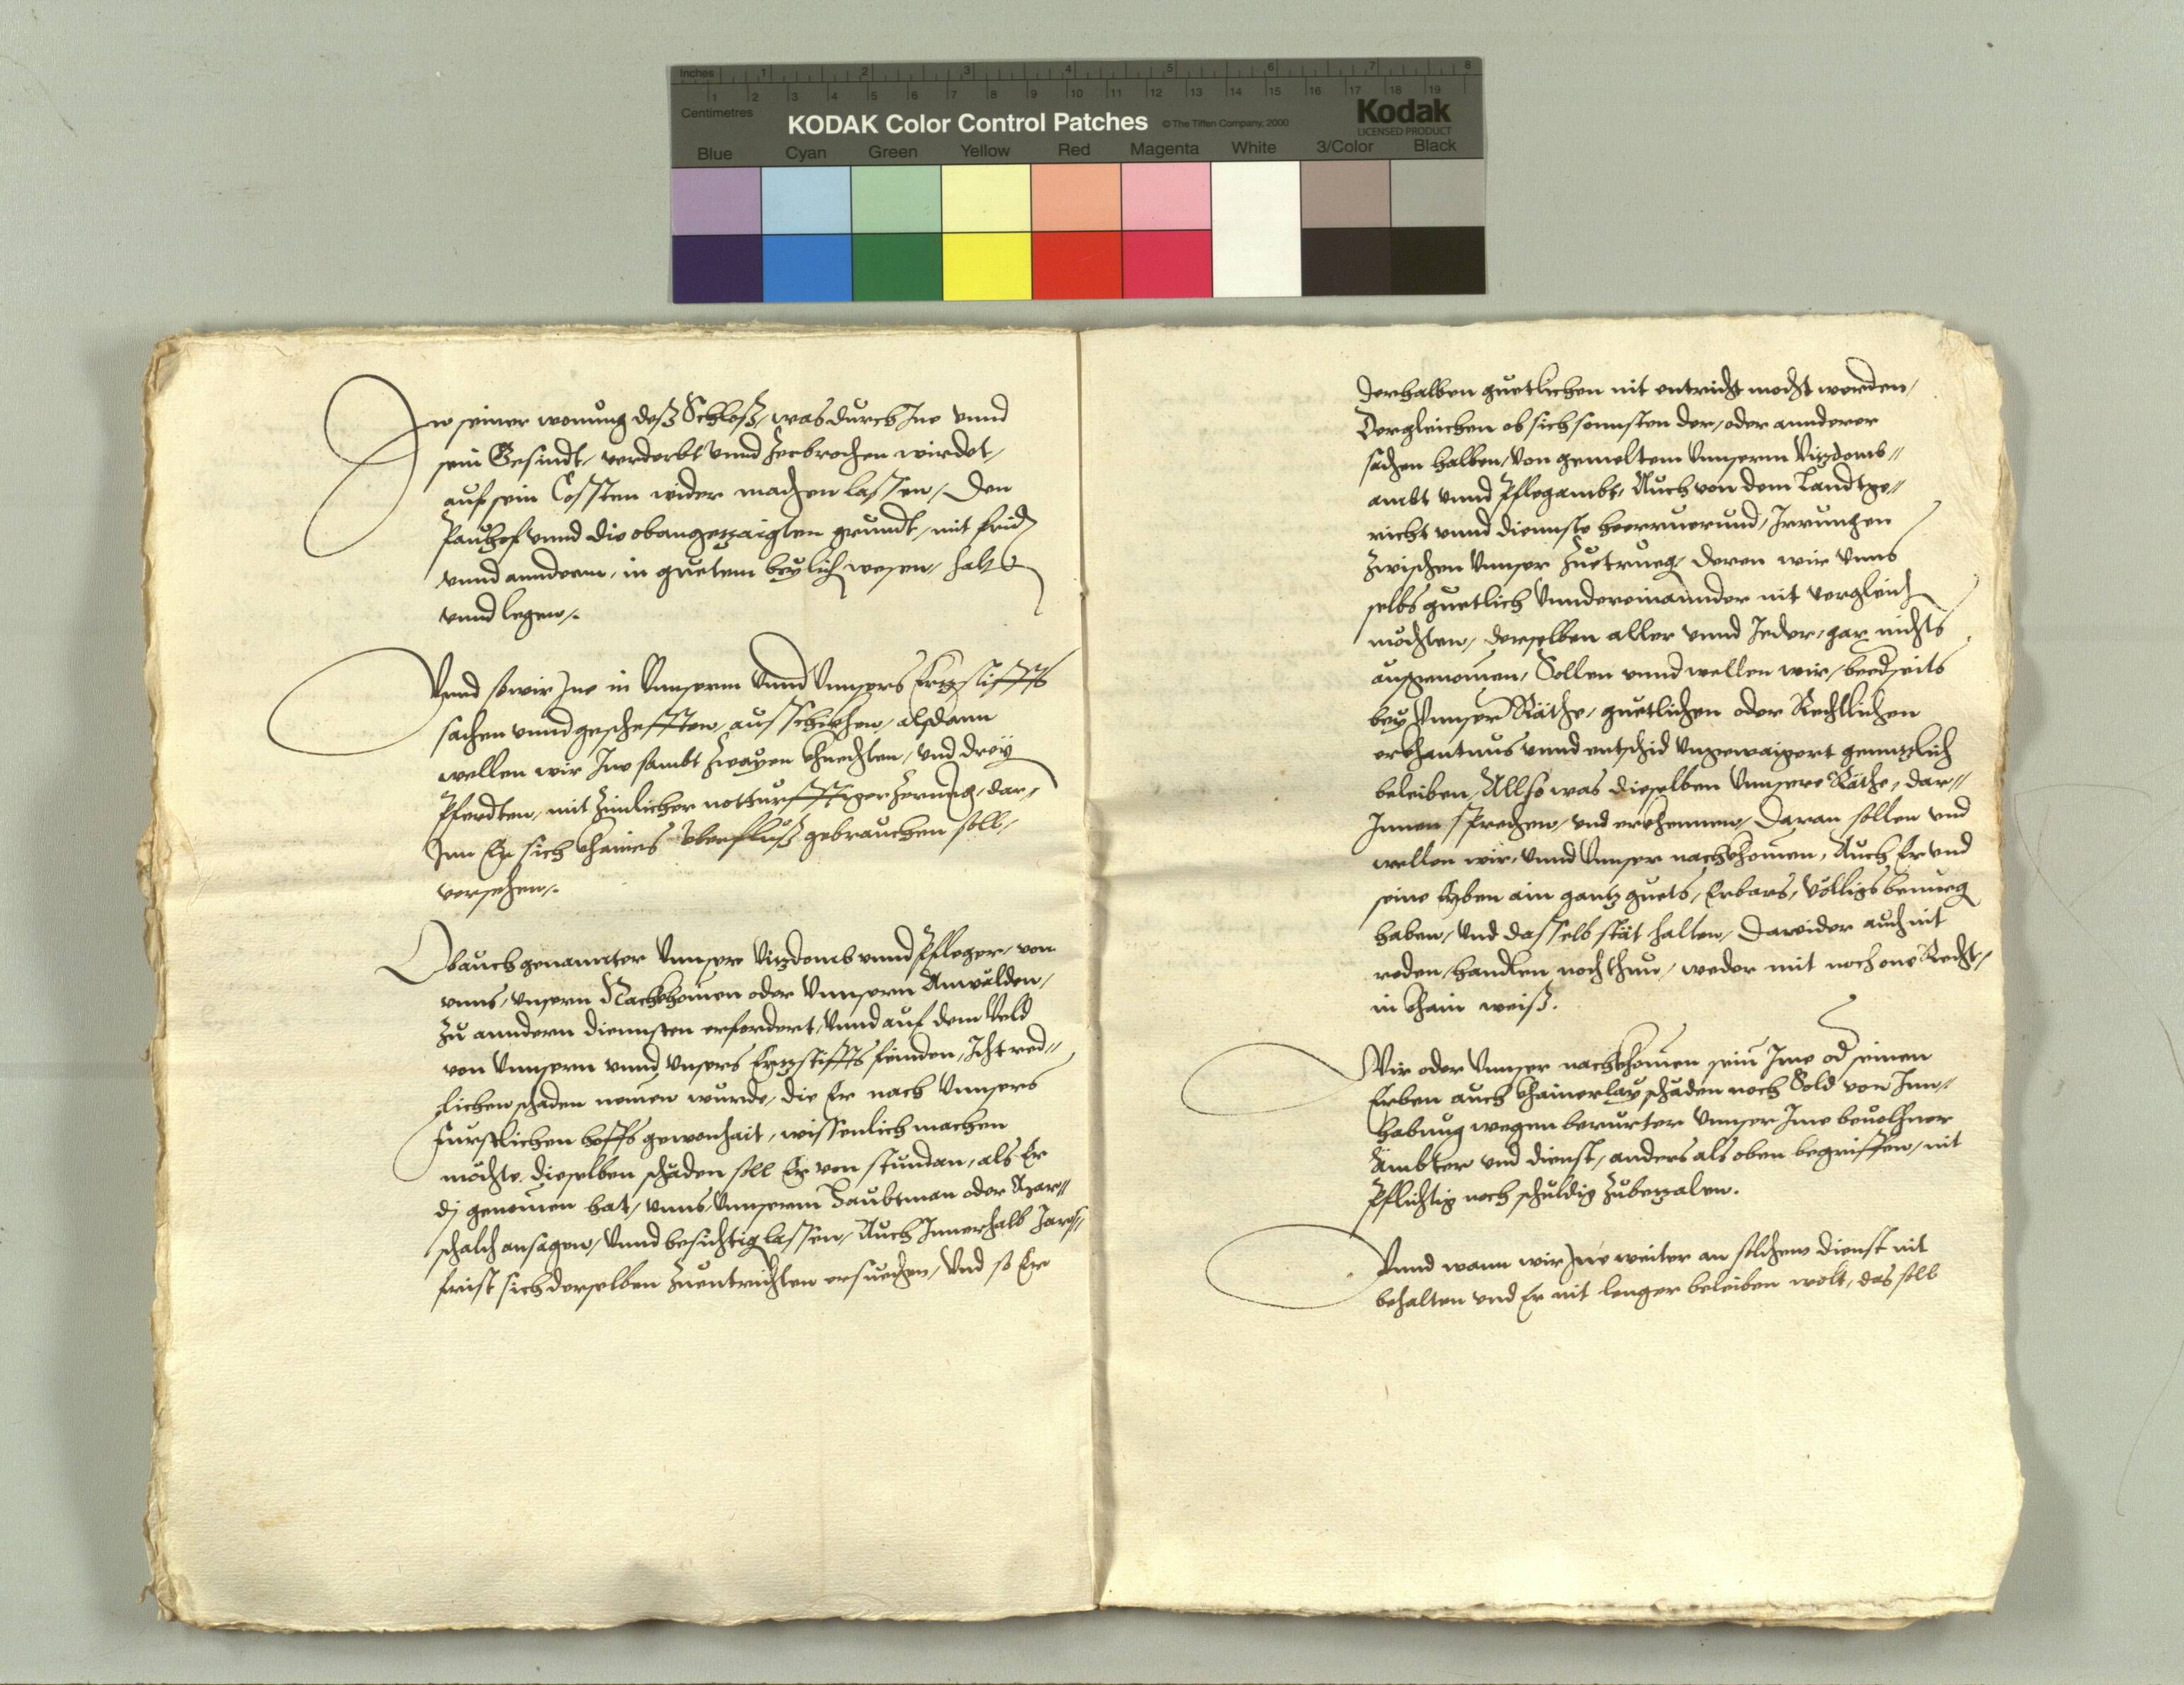 Inches 1 2 3 4 5 6 7 8
Centimetres 1 2 3 4 5 6 7 8 9 10 11 12 13 14 15 16 17 18 19
KODAK Color Control Patches © The Tiffen Company, 2000 Kodak
LICENSED PRODUCT
Blue Cyan Green Yellow Red Magenta White 3/Color Black
In seiner wonung deß Schloß, was durch Ine vnnd
sein Gesindt, verderbt vnnd zerbrochen wirdet,
auf sein Cossten wider machen lassen, Den
Pauhof vnnd die obangezaigten grundt, mit frid
vnnd anndern, in guetem beylich wesen, halt
vnnd legen,.
Vnnd so wir Ine in Vnnserm Vnnd Vnnsers Ertzstiffts
sachen vnnd gescheffften ausschickhen, alsdann
wellen wir Ine sambt zwayen khnechten, vnd drey
Pferdten, mit zimlicher notturfftiger zerung, dar¬
Inn Er sich khaines vberfluß gebrauchen soll,
versehen,.
Ob auch genannter Vnnser Vitzdomb vnnd Pfleger, von
vnns, vnsern Nachkhomen oder Vnnsern Anwälden,
zu anndern diennsten erfordert, Vnnd auf dem Veld
von Vnnsern vnnd vnsers Ertzstiffts feinden, Icht red¬
lichen schaden nemen wurde, die Er nach Vnnsers
furstlichen hoffs gewonhait, wissenlich machen
möchte, dieselben schäden soll Er von stundan, als Er
dj genomen hat, vnns, Vnnserm Haubtman oder Mar¬
schalch ansagen, Vnnd besichtig lassen, Auch Innerhalb Jars¬
frist sich derselben zuentrichten ersuechen, Vnd so Er
derhalben guetlichen nit entricht mocht werden,
Dergleichen ob sich sonnsten der, oder annderer
sachen halben, von gemeltem Vnnserm Vitzdomb¬
ambt vnnd Pflegambt, Auch von dem Landtge¬
richt vnnd diennste herruerund, Irrungen
zwischen Vnnser zuetrueg, deren wir Vnns
selbs guetlich Vnndereinannder nit vergleich
möchten, derselben aller vnnd Jeder, gar nichts
ausgenomen, Sollen vnnd wellen wir, beedseits
bey Vnnser Räthe, guetlichen oder Rechtlichen
erkhantnus vnnd entschid vngewaigert genntzlich
beleiben, Allso was dieselben Vnnsere Räthe, dar¬
Innen sprechen, vnd erkhennen, Daran sollen vnd
wellen wir, vnnd Vnnser nachkhomen, Auch Er vnd
seine Erben ain gantz guets, Erbars, völligs benueg
haben, Vnd dasselb stät halten, Dawider auch nit
reden, handlen noch thun, weder mit noch one Recht,
in khain weiß.
Wir oder Vnnser nachkhomen sein Ime od seinen
Erben auch khainerlay schäden noch Sold von Inn¬
habung wegen berurter Vnnser Ime beuolhner
Ämbter vnd dienst, anders als oben begriffen, nit
Pflichtig noch schuldig zubezalen.
Vnnd wann wir Ine weiter an solchem dienst nit
behalten vnd Er nit lenger beleiben wolt, das soll